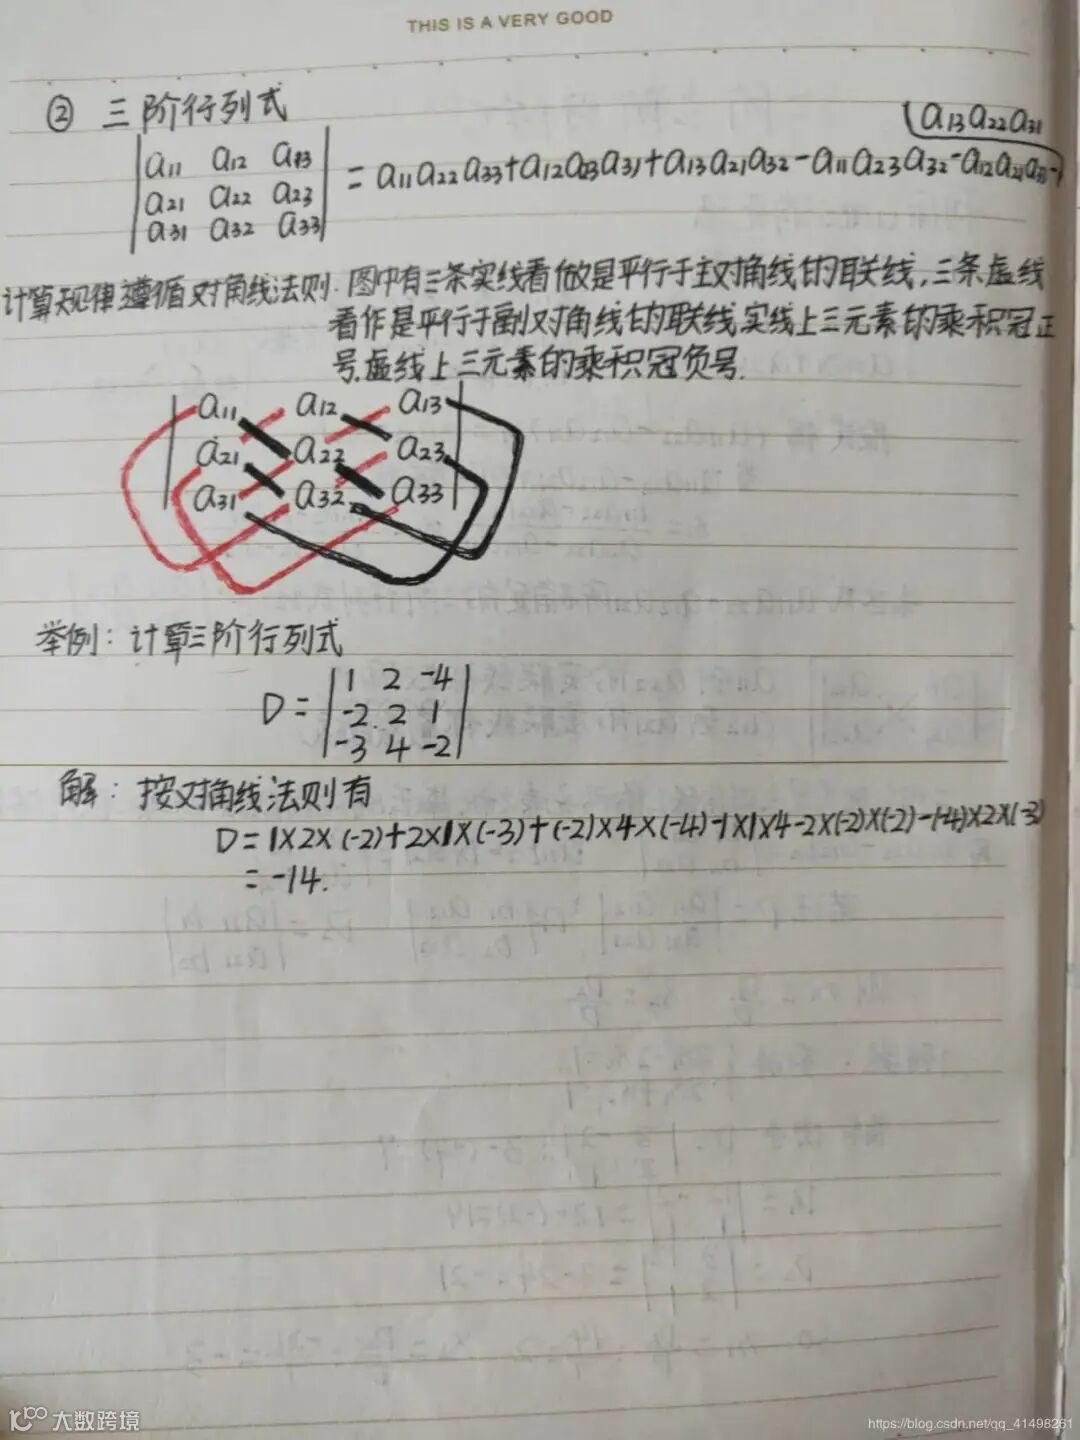 THIS IS A VERY GOOD
② 三阶行列式
a13a22a31
|a11 a12 a13|
|a21 a22 a23| = a11a22a33+a12a23a31+a13a21a32-a11a23a32-a12a21a33-
|a31 a32 a33|
计算规律遵循对角线法则:图中有三条实线看做是平行于主对角线的联线,三条虚线
看作是平行于副对角线的联线,实线上三元素的乘积冠正
号,虚线上三元素的乘积冠负号.
a11 a12 a13
a21 a22 a23
a31 a32 a33
举例:计算三阶行列式
|1 2 -4|
D=|-2 2 1|
|-3 4 -2|
解:按对角线法则有
D=1×2×(-2)+2×1×(-3)+(-2)×4×(-4)-1×1×4-2×(-2)×(-2)-(-4)×2×(-3)
=-14.
大数跨境
https://blog.csdn.net/qq_41498261